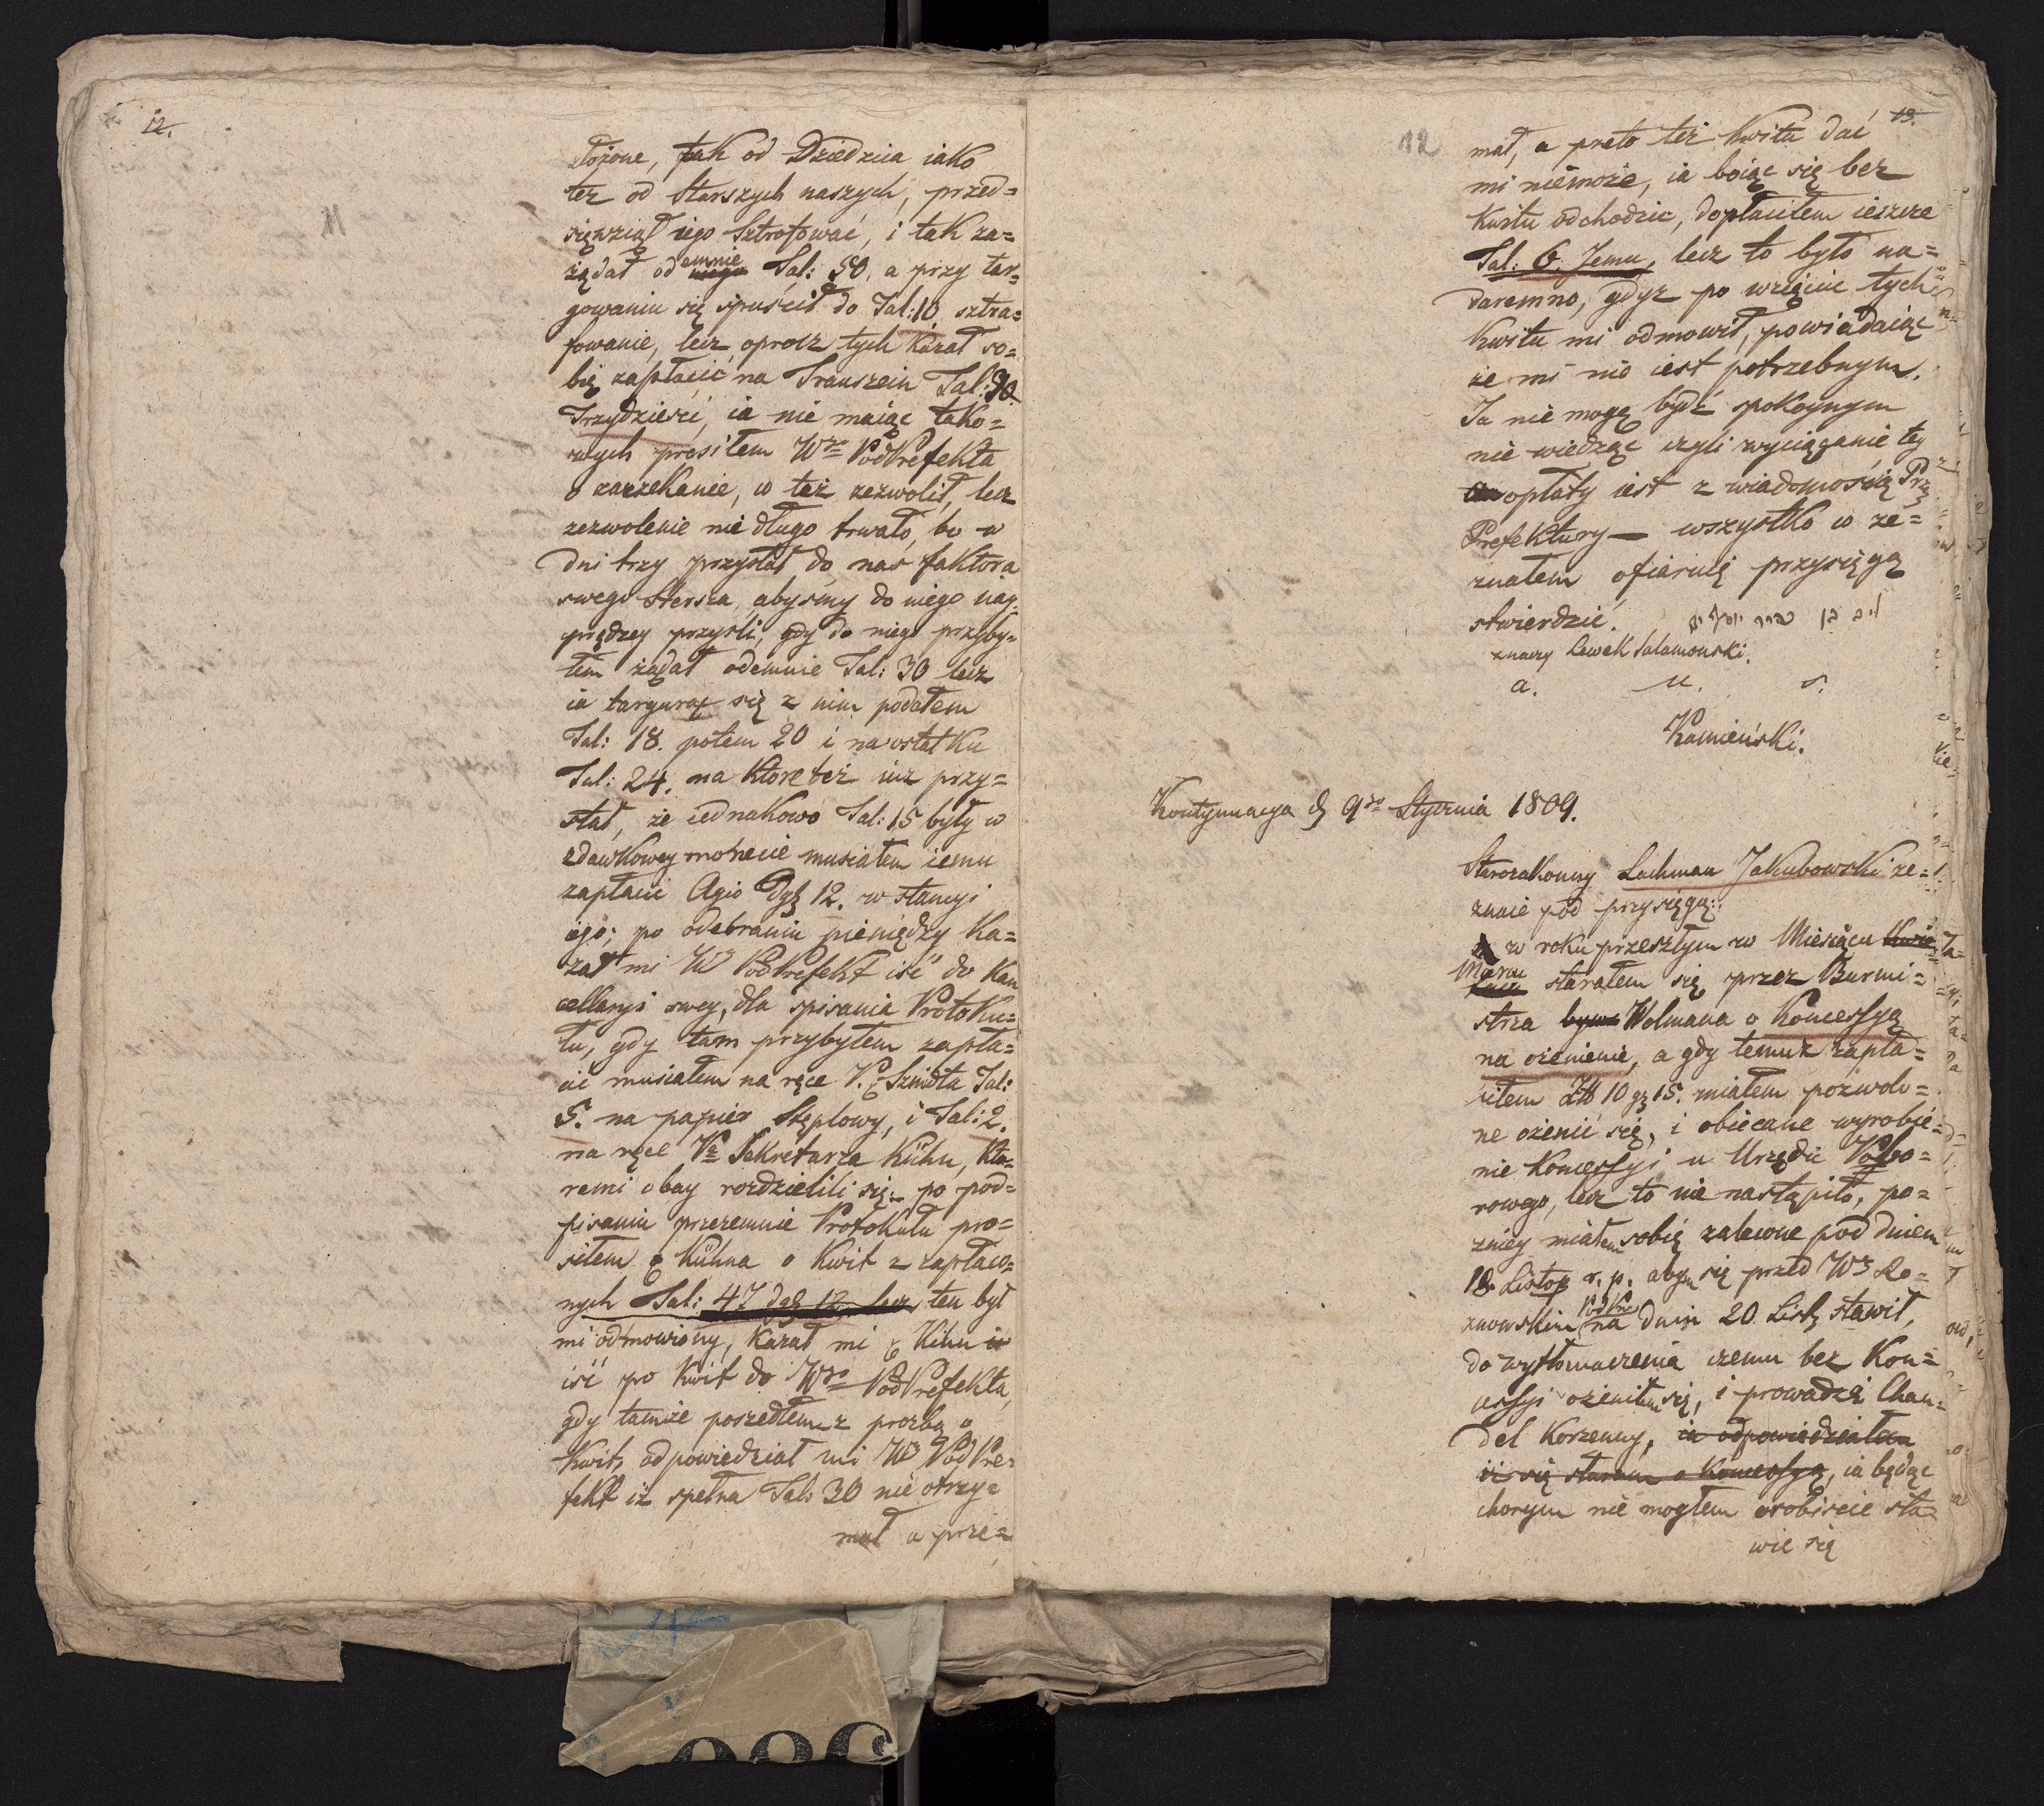 12.
11
łożone, tak od Dziedzica iako
też od Starszych naszych, przed=
sięwziął iego Sztrofować, i tak za=
żądał odemnie Tal: 50, a przy tar=
gowaniu się spuścił do Tal: 10 sztra=
fowanie, lecz oprocz tych kazał so=
bię zapłacić na Trauszein Tal: 30.
Trzydzieści, ia nie maiąc tako=
wych prosiłem Wgo PodPrefekta
o zaczekanie, w też zezwolił, lecz
zezwolenie nie długo trwało, bo w
dni trzy przysłał do nas faktora
swego Hersza, abyśmy do niego nay
prędzey przyszli, gdy do niego przyby=
łem żądał odemnie Tal: 30 lecz
ia targuiąc się z nim podałem
Tal: 18. potem 20 i na ostatku
Tal: 24. na ktore też iuż przy=
stał, że iednakowo Tal: 15 były w
zdawkowey monecie musiałem iemu
zapłacić Agio Dgl 12. w stancyi
iego; po odebraniu pieniędzy ka=
zał mi W PodPrefekt iść do Kan
cellaryi swey, dla spisania Protoku=
łu, gdy tam przybyłem zapła=
cić musiałem na ręce P. Szmidta Tal:
5. na papier Stęplowy, i Tal: 2.
na ręce Pa Sekretarza Kühn, kto=
remi obay rozdzielili się; po pod=
pisaniu przezemnie Protokułu pro=
siłem Kühna o Kwit z zapłaco=
nych Tal: 47 dgl 12 lecz ten był
mi odmowiony, kazał mi Kihn
iść po kwit do Wgo PodPrefekta,
gdy tamże poszedłem z prozbą o
kwit, odpowiedział mi W PodPre=
fekt iż spełna Tal: 30 nie otrzy=
mał a prze=
12
13.
mał, a preto też kwitu dać
mi niemoże, ia boiąc się bez
kwitu odchodzic, dopłaciłem ieszcze
Tal: 6. Jemu, lecz to było na=
daremno, gdyz po wzięciu tych
kwitu mi odmowił, powiadaiąc
że mi nie iest potrzebnym.
Ja nie mogę bydź spokoynym
nie wiedząc czyli wyciąganie tey
opłaty iest z wiadomością
Prefektury — wszystko co ze=
znałem ofiaruię przysięgą
stwierdzić.
znaczy Lewek Salamonski.
a. u. s.
Kamieński.
Kontynuacya d 9go Stycznia 1809.
Starozakonny Lachman Jakubowski ze=
znaie pod przysięgą:
w roku przeszłym w Miesiącu
Marcu starałem się przez Burmi=
strza Wolmana o Koncessyą
na ożenienie, a gdy temuż zapła=
ciłem Zł 10 gz 15. miałem pozwolo=
ne ożenić się, i obiecane wyrobie=
nie Koncessyi u Urzędu Pobo=
rowego, lecz to nie nastąpiło, po=
zniey miałem sobię zalecone pod dniem
18. Listop r. p. abym się przed W Ro=
znowskim PodPre na dnin 20 List stawił,
do wytłomaczenia czemu bez Kon=
cessyi ożeniłem się, i prowadzę Chan=
del Korzenny, ia odpowiedziałem
iż się staram o Koncessyą, ia będąc
chorym nie mogłem osobiscie sta=
wić się